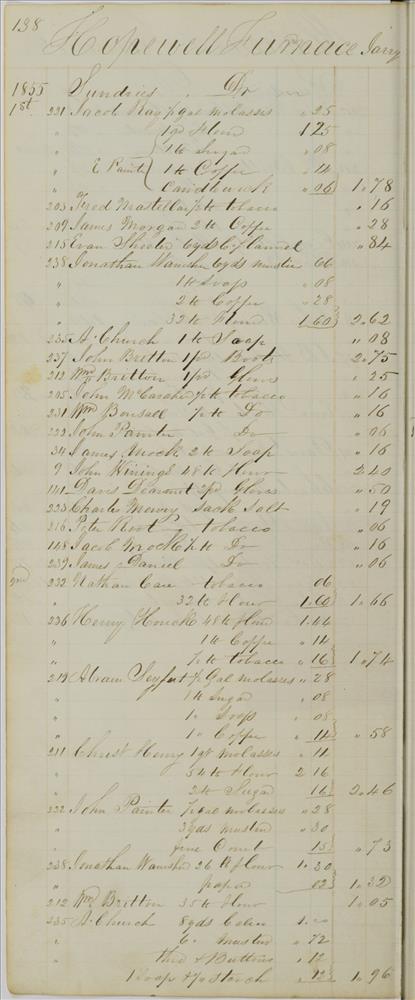 138
Hopewell Furnace Jany
1855 Sundries Dr
1st 221 Jacob Ray ½ gal molasses " 25
" 1 qr Flour 1 25
" 1 lb Sugar " 08
" E Painter 1 lb Coffee " 14
" Candlewick " 06 1.78
203 Fred Mastellar ½ lb tobacco " 16
209 James Morgan 2 lb Coffee " 28
215 Evan Sheeler 6 yds C. flannel " 84
238 Jonathan Wamsher 6 yds muslin 66
" 1 lb Soap " 08
" 2 lb Coffee " 28
" 32 lb Flour 1.60 2.62
235 A. Church 1 lb Soap " 08
237 John Britton 1 pr Boots 2.75
212 Wm Britton 1 pr Gloves " 25
205 John McCaraher ½ lb tobacco " 16
231 Wm Bonsall ½ lb Do " 16
222 John Painter Do " 06
34 James Mock 2 lb Soap " 16
9 John Wining 48 lb Flour 2.40
141 Davis 2 pr Gloves " 50
223 Charles Mowery sack Salt " 19
216 Peter Root tobacco " 06
148 Jacob Mock ½ lb Do " 16
239 James Daniel Do " 06
2nd 232 Nathan Care tobacco 06
" 32 lb Flour 1.60 1.66
236 Henry Houck 48 lb Flour 1.44
" 1 lb Coffee " 14
" ½ lb tobacco " 16 1.74
219 Abram Seyfert ½ Gal molasses " 28
" 1 lb Sugar " 08
" 1 " Soap " 08
" 1 " Coffee " 14 " 58
211 Christ Henry 1 qt molasses " 14
" 54 lb Flour 2 16
" 2 lb Sugar 16 2.46
222 John Painter ½ gal molasses " 28
" 3 yds muslin " 30
" fine Comb 15 " 73
238 Jonathan Wamsher 26 lb flour 1.30
" paper 02 1.32
212 Wm Britton 35 lb Flour 1.05
235 A. Church 8 yds Calico 1.00
" 6 " Muslin " 72
" thrd & Buttons " 12
1 Soap & ½ Starch " 12 1.96